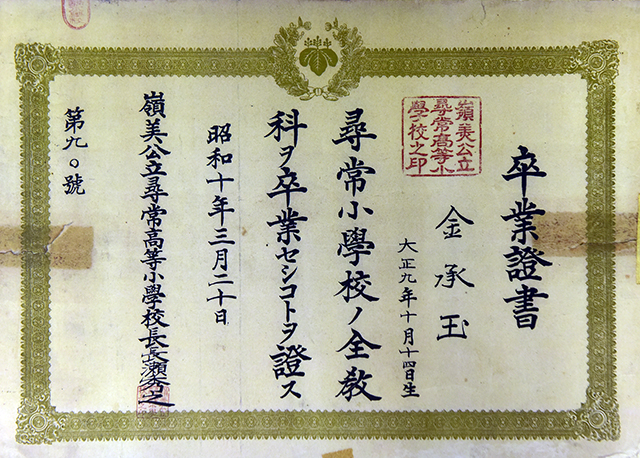 卒業證書
嶺美公立
尋常高等小
學校之印
金承玉
大正九年十月十四日生
尋常小學校ノ全敎
科ヲ卒業セシコトヲ證ス
昭和十年三月二十日
嶺美公立尋常高等小學校長長瀬秀之
第九〇號